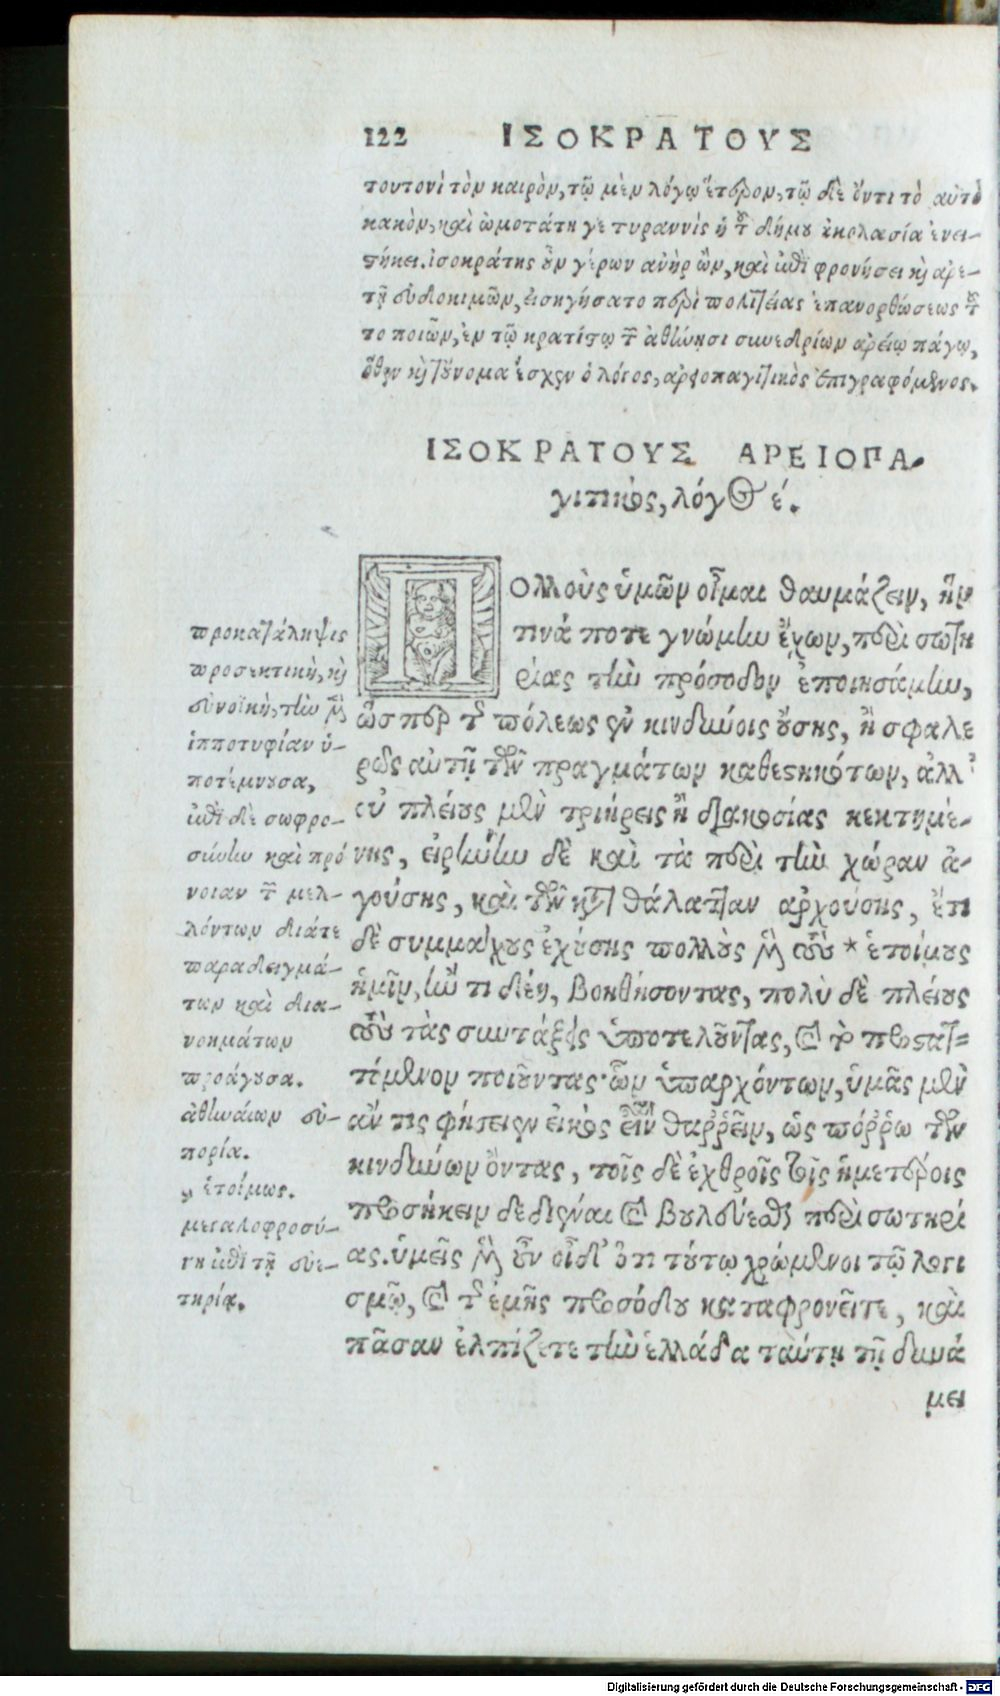 122 ΙΣΟΚΡΑΤΟΥΣ
τουτονὶ τὸν καιρὸν, τῷ μὲν λόγῳ ἕτερον, τῷ δὲ ὄντι τὸ αὐτὸ
κακὸν, καὶ ὠμοτάτη γε τυραννὶς ἡ τοῦ δήμου ἀκολασία ἐνει-
στήκει. ἰσοκράτης οὖν γέρων ἀνὴρ ὢν, καὶ ἐπὶ φρονήσει καὶ ἀρε-
τῇ εὐδοκιμῶν, εἰσηγήσατο περὶ πολιτείας ἐπανορθώσεως
το ποιῶν, ἐν τῷ κρατίστῳ τῶν ἀθήνησι συνεδρίων ἀρείῳ πάγῳ,
ὅθεν καὶ τοὔνομα ἔσχεν ὁ λόγος, ἀρεοπαγιτικὸς ἐπιγραφόμενος.
ΙΣΟΚΡΑΤΟΥΣ ΑΡΕΙΟΠΑ-
γιτικὸς, λόγος έ.
Πολλοὺς ὑμῶν οἶμαι θαυμάζειν, ἥν
τινά ποτε γνώμην ἔχων, περὶ σωτη
ρίας τὴν πρόσοδον ἐποιησάμην,
ὥσπερ τῆς πόλεως ἐν κινδύνοις οὔσης, ἢ σφαλε
ρῶς αὐτῇ τῶν πραγμάτων καθεστηκότων, ἀλλ'
οὐ πλείους μὲν τριήρεις ἢ διακοσίας κεκτημέ-
νης, εἰρήνην δὲ καὶ τὰ περὶ τὴν χώραν ἀ-
γούσης, καὶ τῶν κατὰ θάλατταν ἀρχούσης, ἔτι
δὲ συμμάχους ἐχούσης πολλοὺς μὲν τοὺς * ἑτοίμους
ἡμῖν, ἤν τι δέῃ, βοηθήσοντας, πολὺ δὲ πλείους
τοὺς τὰς συντάξεις ὑποτελοῦντας, καὶ τὸ προστατ=
τόμενον ποιοῦντας· ὧν ὑπαρχόντων, ὑμᾶς μὲν
ἄν τις φήσειεν εἰκὸς εἶναι θαῤῥεῖν, ὡς πόῤῥω τῶν
κινδύνων ὄντας, τοῖς δὲ ἐχθροῖς τοῖς ἡμετέροις
προσήκειν δεδιέναι καὶ βουλεύεσθαι περὶ σωτηρί
ας. ὑμεῖς μὲν οὖν οἶδ' ὅτι τούτῳ χρώμενοι τῷ λογι
σμῷ, καὶ τῆς ἐμῆς προσόδου καταφρονεῖτε, καὶ
πᾶσαν ἐλπίζετε τὴν ἑλλάδα ταύτῃ τῇ δυνά
μει
προκατάληψις
προσεκτικὴ, καὶ
εὐνοϊκὴ, τὴν μὲν
ἱπποτυφίαν ὑ-
ποτέμνουσα,
ἐπὶ δὲ σωφρο-
σύνην καὶ πρό
νοιαν τῶν μελ-
λόντων διάτε
παραδειγμά-
των καὶ δια-
νοημάτων
προάγουσα.
ἀθηναίων εὐ-
πορία.
ἑτοίμως.
μεγαλοφροσύ-
νη ἐπὶ τῇ εὐε-
τηρίᾳ.
Digitalisierung gefördert durch die Deutsche Forschungsgemeinschaft - DFG